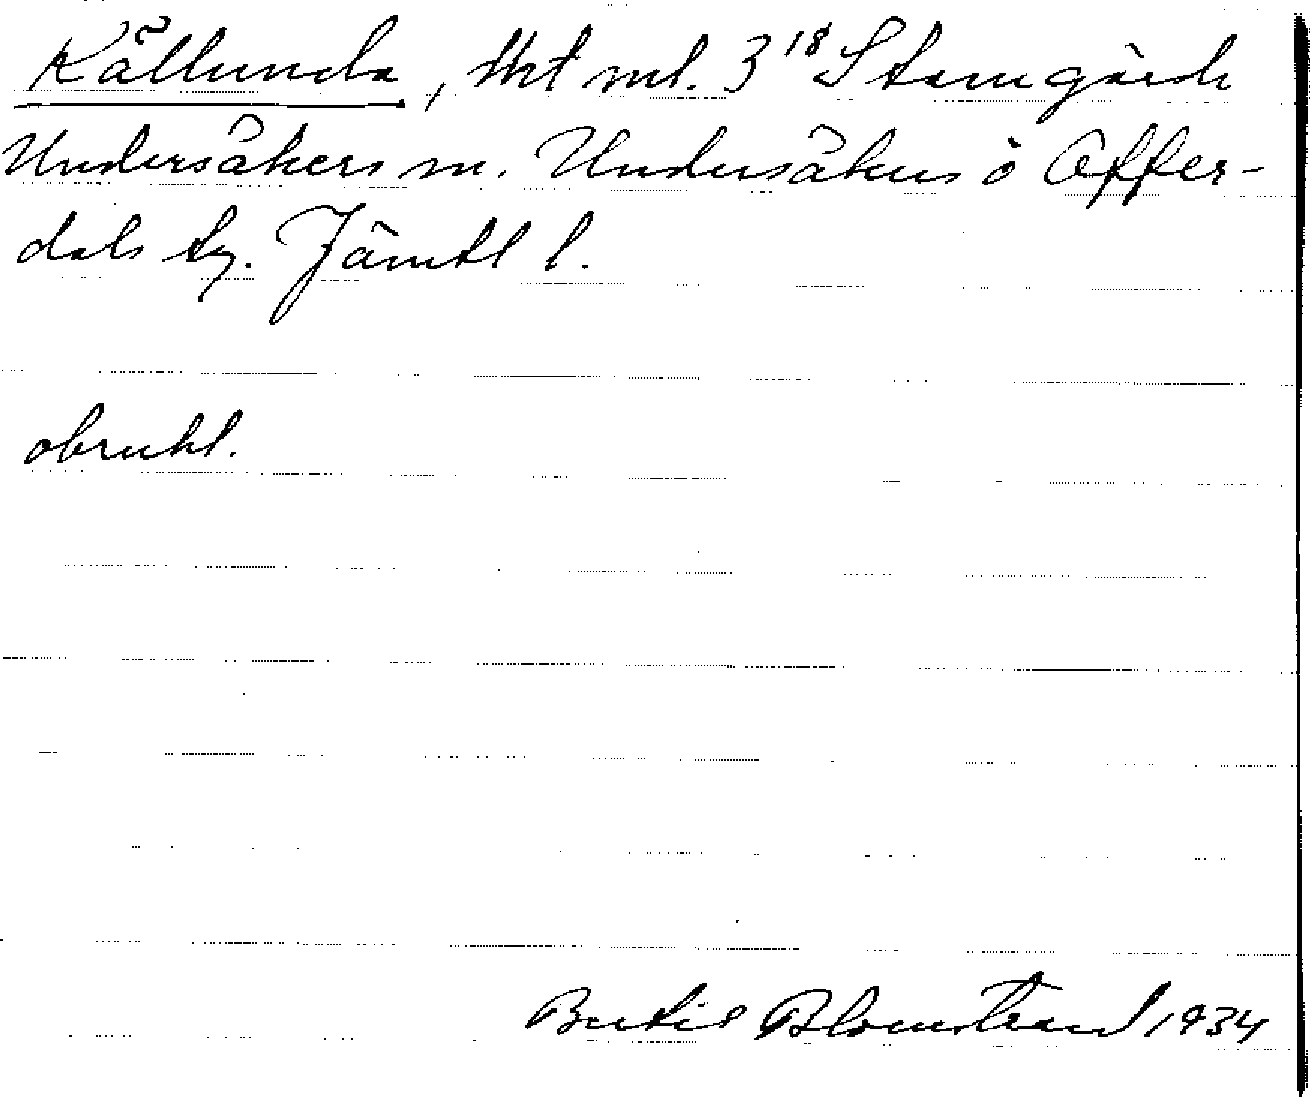 Källunda, lht nr. 3¹⁸ Stamgärde
Undersåkers sn. Undersåkers o Offer-
dals tg. Jämtl l.
obrukl.
Bertil Blomstrand 1934